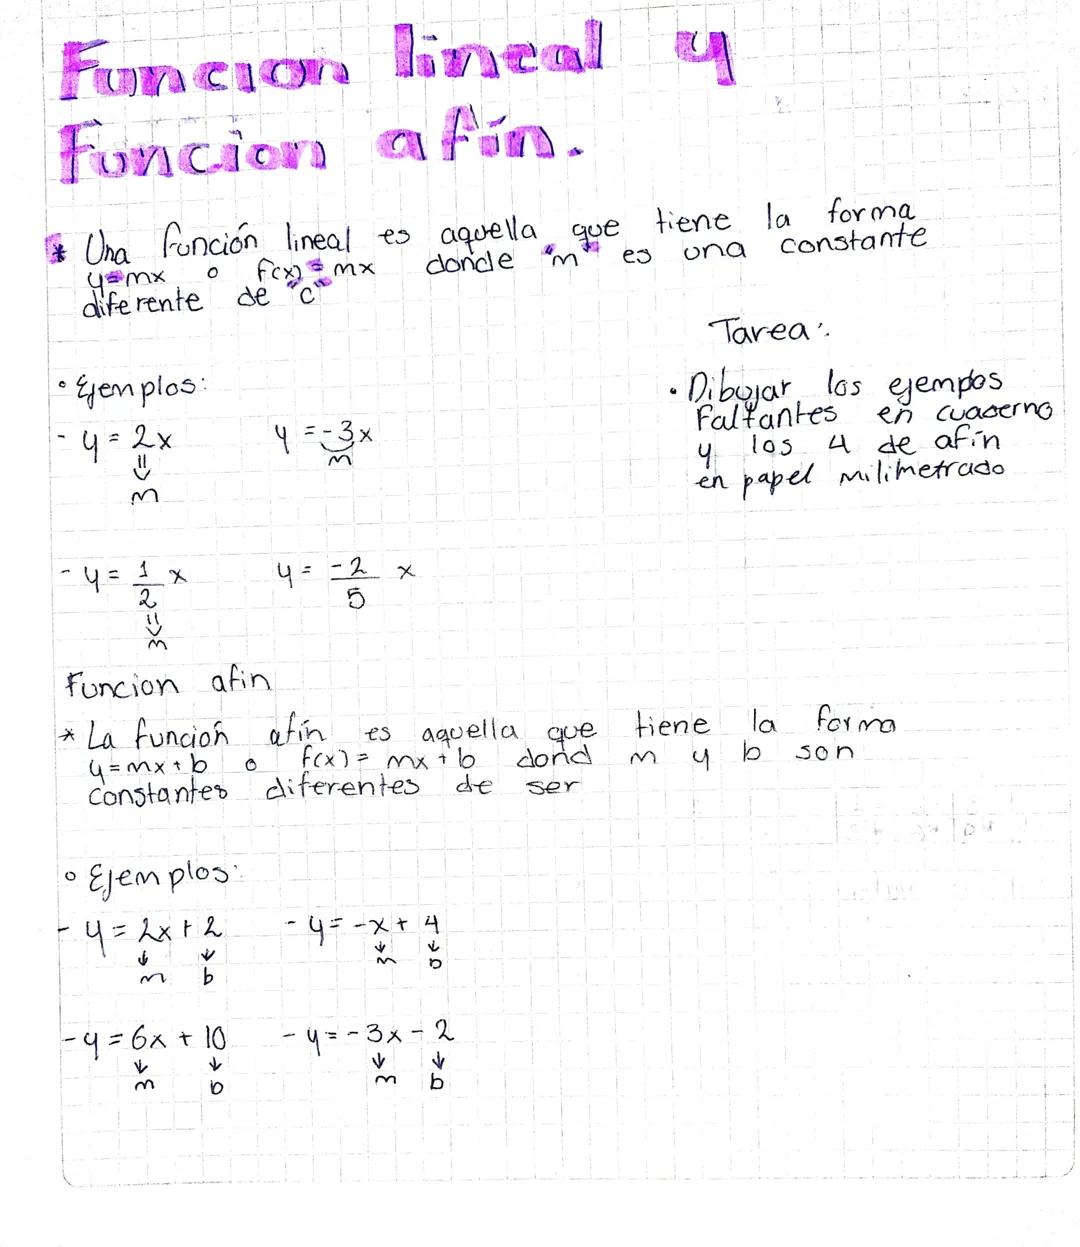 Funcion lineal y
Funcion afín.
* Una función lineal es aquella que tiene la forma
y=mx o f(x)=mx donde "m" es una constante
diferente de "c"
Tarea:
• Ejemplos:
• Dibujar los ejempos
Faltantes en cuaderno
y los 4 de afín
en papel milimetrado
- y = 2x y = -3x
m m
- y = 1/2 x y = -2/5 x
m
Funcion afin
* La función afín es aquella que tiene la forma
y=mx+b o f(x)= mx+b dond m y b son
constantes diferentes de ser
◦ Ejemplos:
- y = 2x + 2 - y = -x + 4
m b m b
- y = 6x + 10 - y = -3x - 2
m b m b